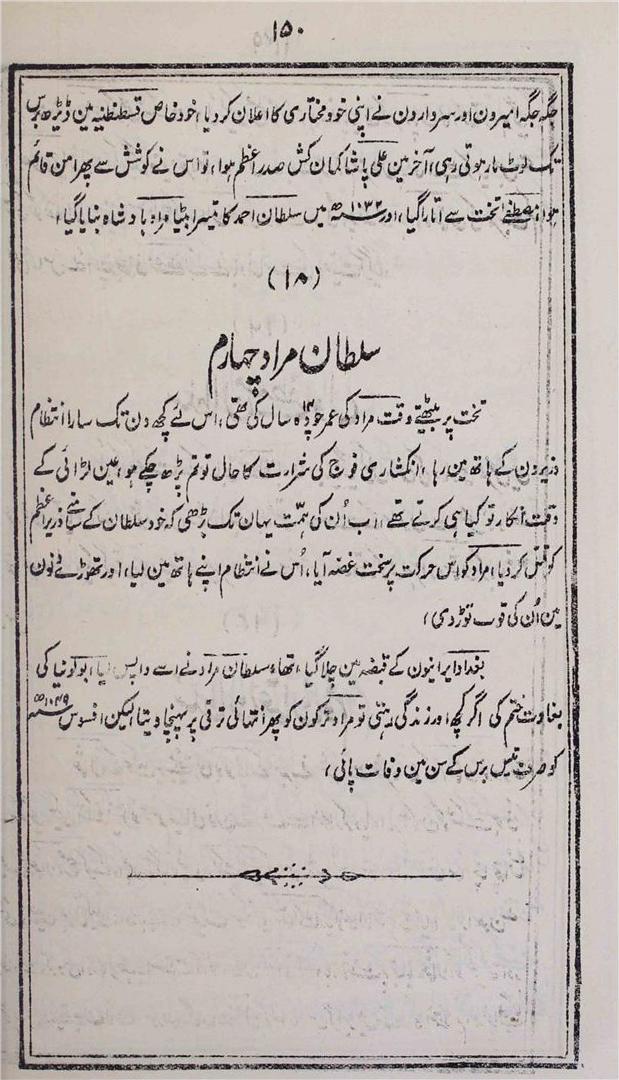 ۱۵۰
جگہ جگہ امیرون اور سردارون نے اپنی خود مختاری کا اعلان کر دیا، خود خاص قسطنطنیہ مین ڈیڑھ برس
تک لوٹ مار ہوتی رہی، آخر مین علی پاشا کمان کش صدر اعظم ہوا، تو اس نے کوشش سے پھر امن قائم
ہوا، مصطفےٰ تخت سے اتارا گیا، اور ۱۰۳۲ھ میں سلطان احمد کا تیسرا بیٹا مراد بادشاہ بنایا گیا،
(۱۸)
سلطان مراد چہارم
تخت پر بیٹھتے وقت مراد کی عمر چودہ ۱۴ سال کی تھی، اس لئے کچھ دن تک سارا انتظام
وزیرون کے ہاتھ مین رہا، انکشاری فوج کی شرارت کا حال تو تم پڑھ چکے ہو، عین لڑائی کے
وقت انکار تو کیا ہی کرتے تھے، اب اُن کی ہمّت یہان تک بڑھی کہ خود سلطان کے سامنے وزیر اعظم
کو قتل کر دیا، مراد کو اس حرکت پر سخت غصہ آیا، اُس نے انتظام اپنے ہاتھ مین لیا، اور تھوڑے دنون
مین اُن کی قوت توڑ دی،
بغداد ایرانیون کے قبضہ مین چلا گیا تھا، سلطان مراد نے اسے واپس لیا، پولونیا کی
بغاوت ختم کی اگر کچھ اور زندگی رہتی تو مراد ترکون کو پھر انتہائی ترقی پر پہنچا دیتا لیکن افسوس ۱۰۴۹ھ
کو صرف تیس برس کے سن مین وفات پائی،